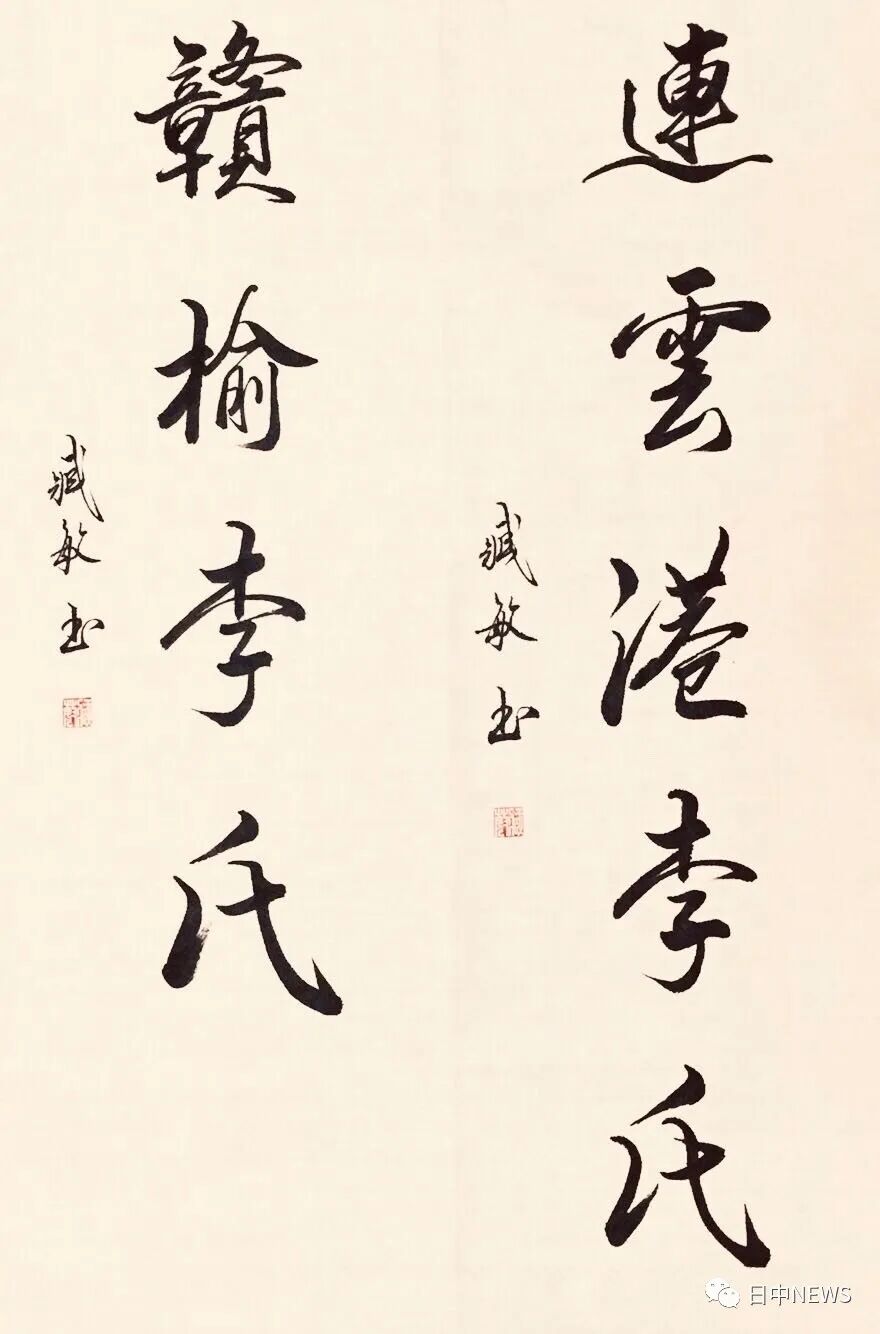 連雲港李氏
臧敏书
贛榆李氏
臧敏书
日中NEWS